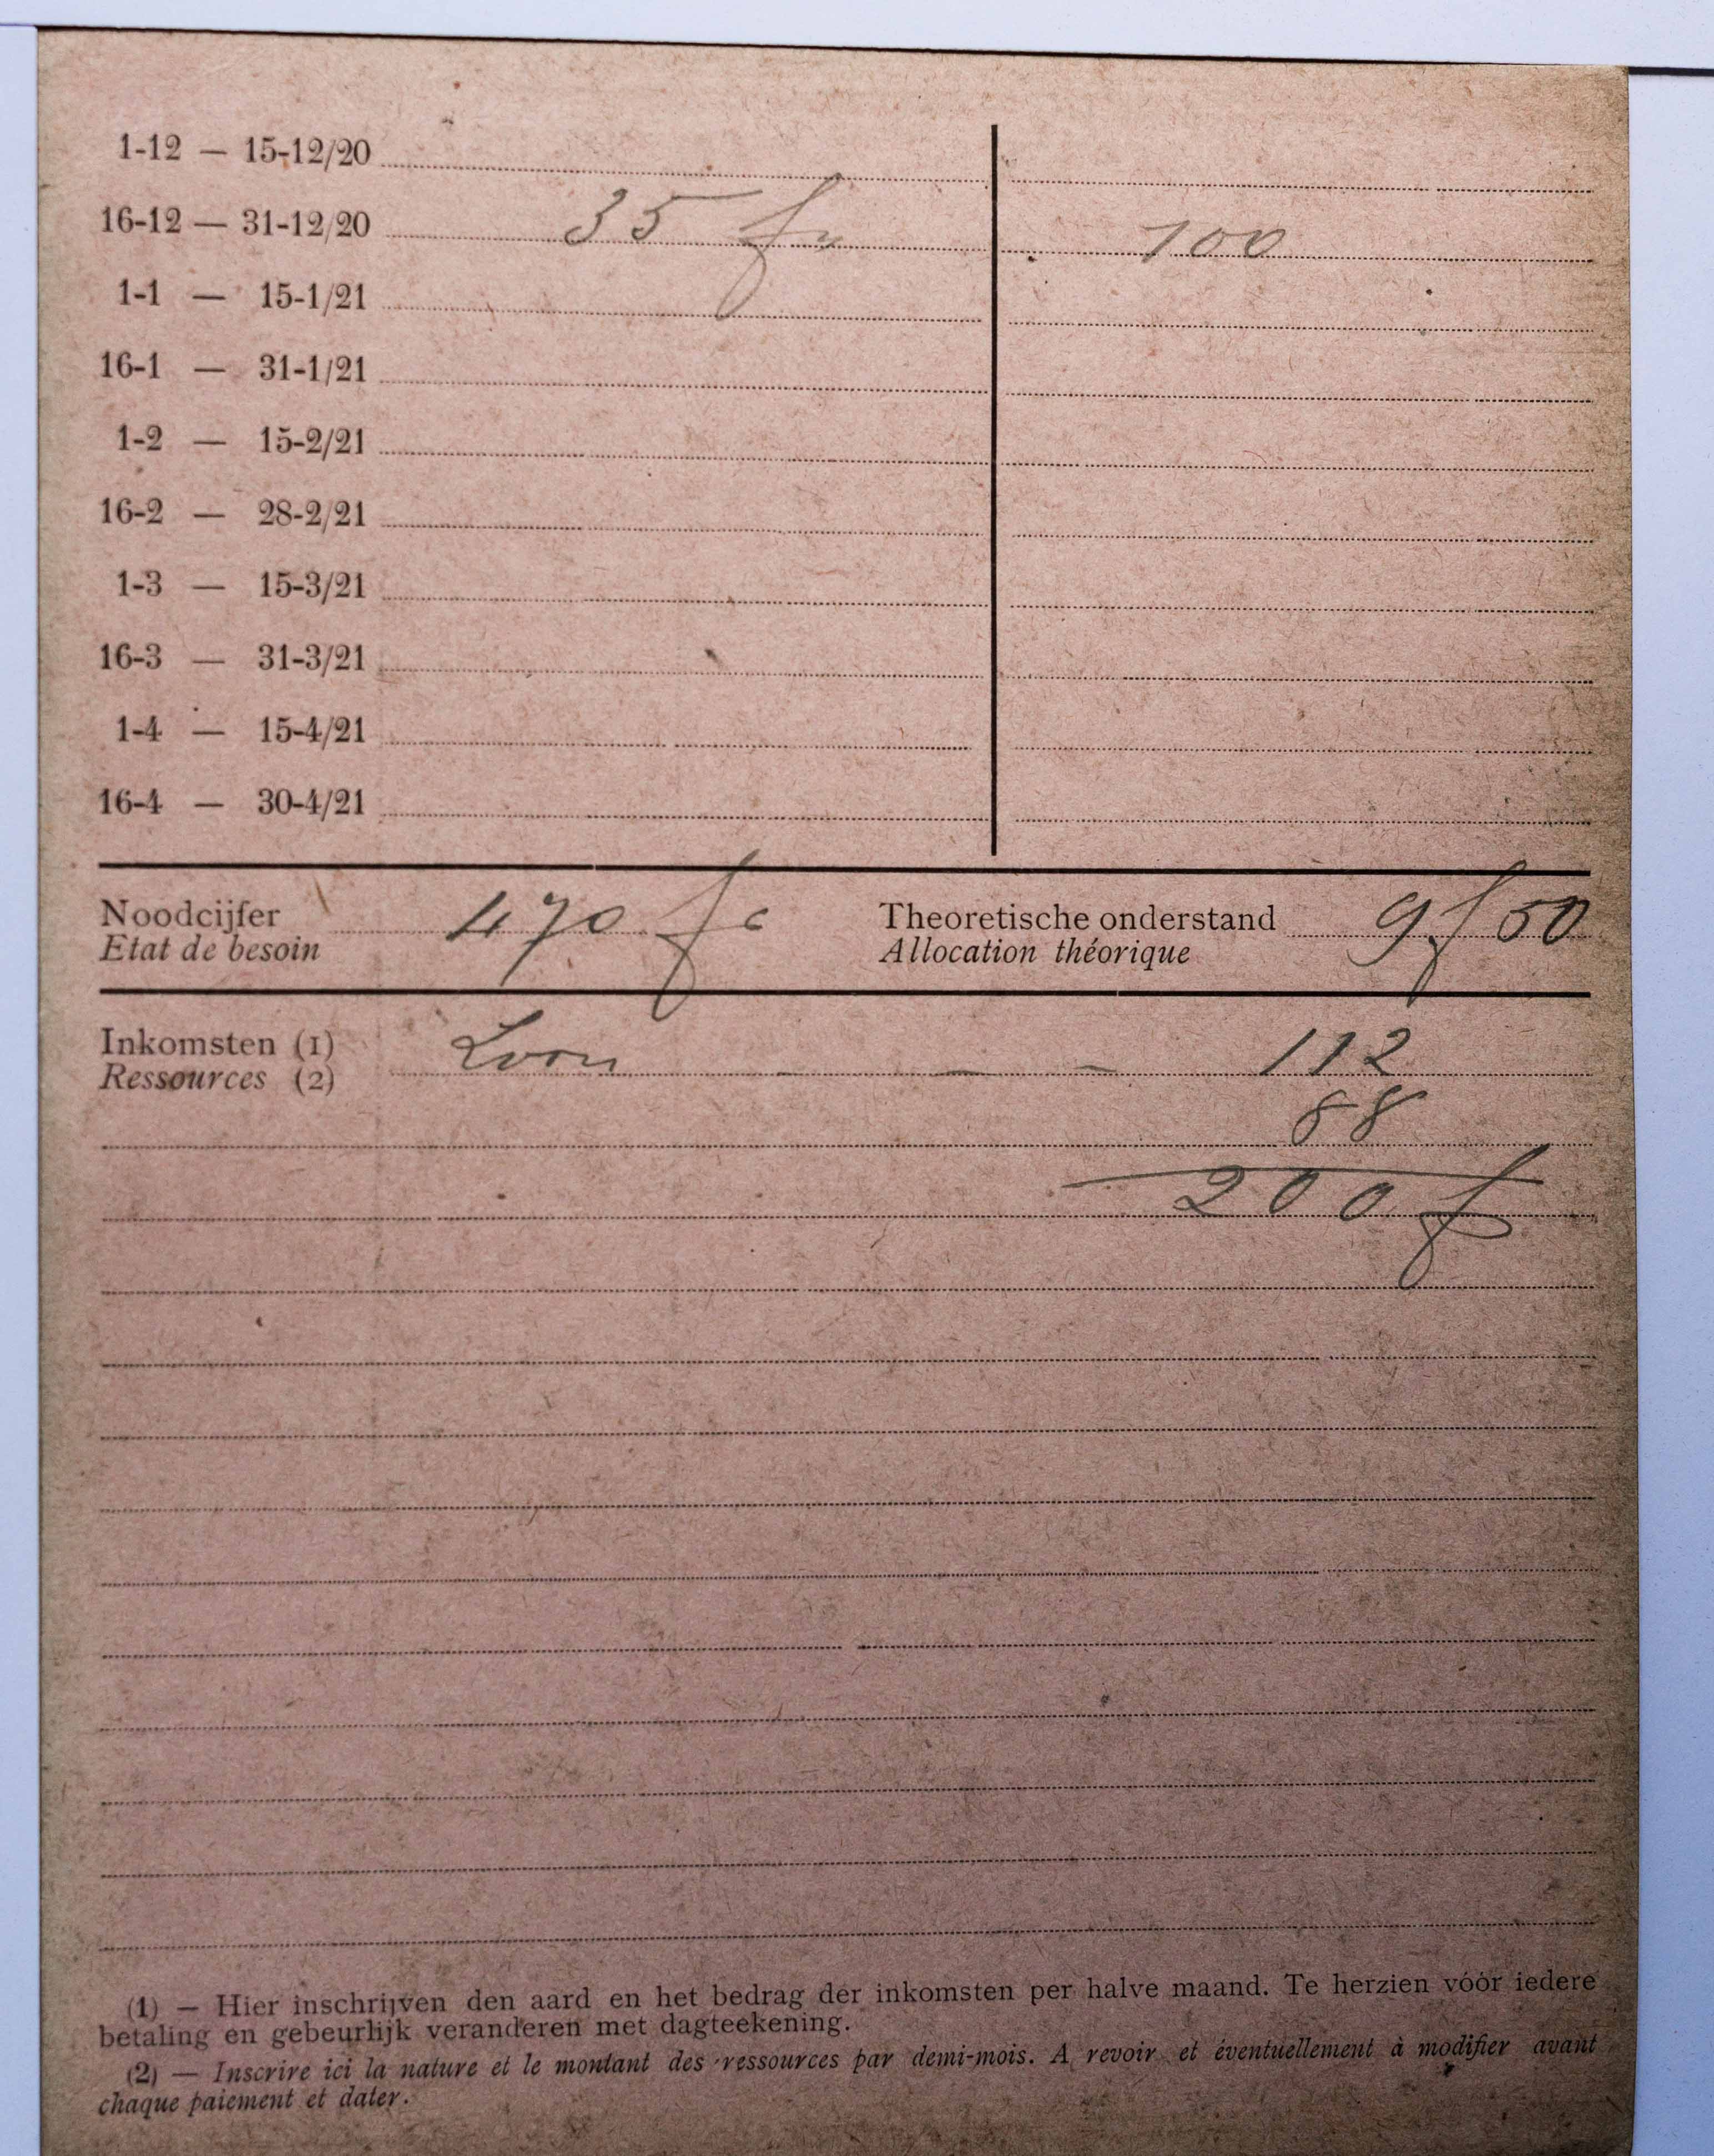 1-12 — 15-12/20
16-12 — 31-12/20 35 fr 100
1-1 — 15-1/21
16-1 — 31-1/21
1-2 — 15-2/21
16-2 — 28-2/21
1-3 — 15-3/21
16-3 — 31-3/21
1-4 — 15-4/21
16-4 — 30-4/21
Noodcijfer 470 fc Theoretische onderstand 9f50
Etat de besoin Allocation théorique
Inkomsten (1) Loon — — — 112
Ressources (2)
88
200 f
(1) — Hier inschrijven den aard en het bedrag der inkomsten per halve maand. Te herzien vóór iedere
betaling en gebeurlijk veranderen met dagteekening.
(2) — Inscrire ici la nature et le montant des ressources par demi-mois. A revoir et éventuellement à modifier avant
chaque paiement et dater.